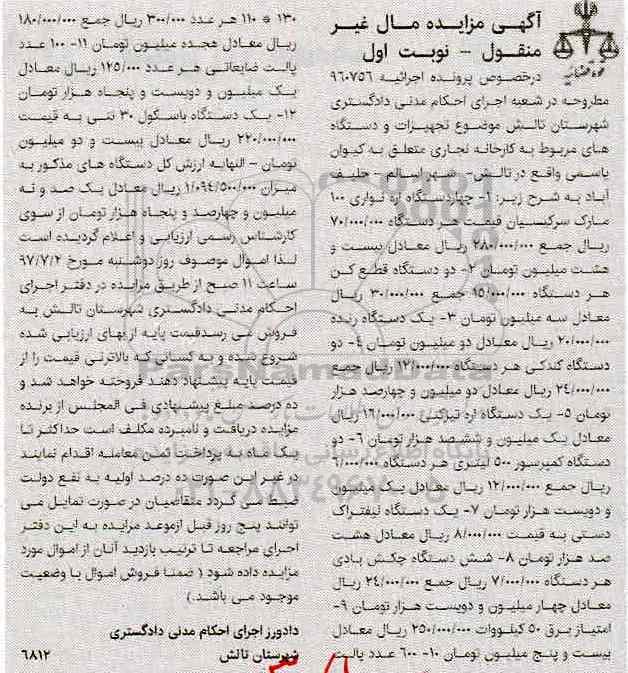 آگهی مزایده مال غیر
منقول – نوبت اول
درخصوص پرونده اجرائیه ۹۶۰۷۵۶
مطروحه در شعبه اجرای احکام مدنی دادگستری
شهرستان تالش موضوع تجهیزات و دستگاه
های مربوط به کارخانه نجاری متعلق به کیوان
یاسمی واقع در تالش- شهر اسالم - خلیف
آباد به شرح زیر: ۱- چهاردستگاه اره نواری ۱۰۰
مارک سرکیسیان قیمت هر دستگاه ۷۰/۰۰۰/۰۰۰
ریال جمع ۲۸۰/۰۰۰/۰۰۰ ریال معادل بیست و
هشت میلیون تومان ۲- دو دستگاه قطع کن
هر دستگاه ۱۵/۰۰۰/۰۰۰ جمع ۳۰/۰۰۰/۰۰۰ ریال
معادل سه میلیون تومان ۳- یک دستگاه رنده
۲۰/۰۰۰/۰۰۰ ریال معادل دو میلیون تومان ۴- دو
دستگاه کندکی هر دستگاه ۱۲/۰۰۰/۰۰۰ ریال جمع
۲۴/۰۰۰/۰۰۰ ریال معادل دو میلیون و چهارصد هزار
تومان ۵- یک دستگاه اره تیزکنی ۱۶/۰۰۰/۰۰۰ ریال
معادل یک میلیون و ششصد هزار تومان ۶- دو
دستگاه کمپرسور ۵۰۰ لیتری هر دستگاه ۶/۰۰۰/۰۰۰
ریال جمع ۱۲/۰۰۰/۰۰۰ ریال معادل یک میلیون
و دویست هزار تومان ۷- یک دستگاه لیفتراک
دستی به قیمت ۸/۰۰۰/۰۰۰ ریال معادل هشت
صد هزار تومان ۸- شش دستگاه چکش بادی
هر دستگاه ۷/۰۰۰/۰۰۰ ریال جمع ۲۴/۰۰۰/۰۰۰ ریال
معادل چهار میلیون و دویست هزار تومان ۹-
امتیاز برق ۵۰ کیلووات ۲۵۰/۰۰۰/۰۰۰ ریال معادل
بیست و پنج میلیون تومان ۱۰- ۶۰۰ عدد پالت
۱۳۰ * ۱۱۰ هر عدد ۳۰۰/۰۰۰ ریال جمع ۱۸۰/۰۰۰/۰۰۰
ریال معادل هجده میلیون تومان ۱۱- ۱۰۰ عدد
پالت ضایعاتی هر عدد ۱۲۵/۰۰۰ ریال معادل
یک میلیون و دویست و پنجاه هزار تومان
۱۲- یک دستگاه باسکول ۳۰ تنی به قیمت
۲۲۰/۰۰۰/۰۰۰ ریال معادل بیست و دو میلیون
تومان – النهایه ارزش کل دستگاه های مذکور به
میزان ۱/۰۹۴/۵۰۰/۰۰۰ ریال معادل یک صد و نه
میلیون و چهارصد و پنجاه هزار تومان از سوی
کارشناس رسمی ارزیابی و اعلام گردیده است
لذا اموال موصوف روز دوشنبه مورخ ۹۷/۷/۲
ساعت ۱۱ صبح از طریق مزایده در دفتر اجرای
احکام مدنی دادگستری شهرستان تالش به
فروش می رسدقیمت پایه از بهای ارزیابی شده
شروع شده و به کسانی که بالاترین قیمت را از
قیمت پایه پیشنهاد دهند فروخته خواهد شد و
ده درصد مبلغ پیشنهادی فی المجلس از برنده
مزایده دریافت و نامبرده مکلف است حداکثر تا
یک ماه به پرداخت ثمن معامله اقدام نمایند
در غیر این صورت ده درصد اولیه به نفع دولت
ضبط می گردد متقاضیان در صورت تمایل می
توانند پنج روز قبل ازموعد مزایده به این دفتر
اجرای مراجعه تا ترتیب بازدید آنان از اموال مورد
مزایده داده شود ( ضمنا فروش اموال با وضعیت
موجود می باشد.)
دادورز اجرای احکام مدنی دادگستری
شهرستان تالش ۶۸۱۲
ParsNamadData